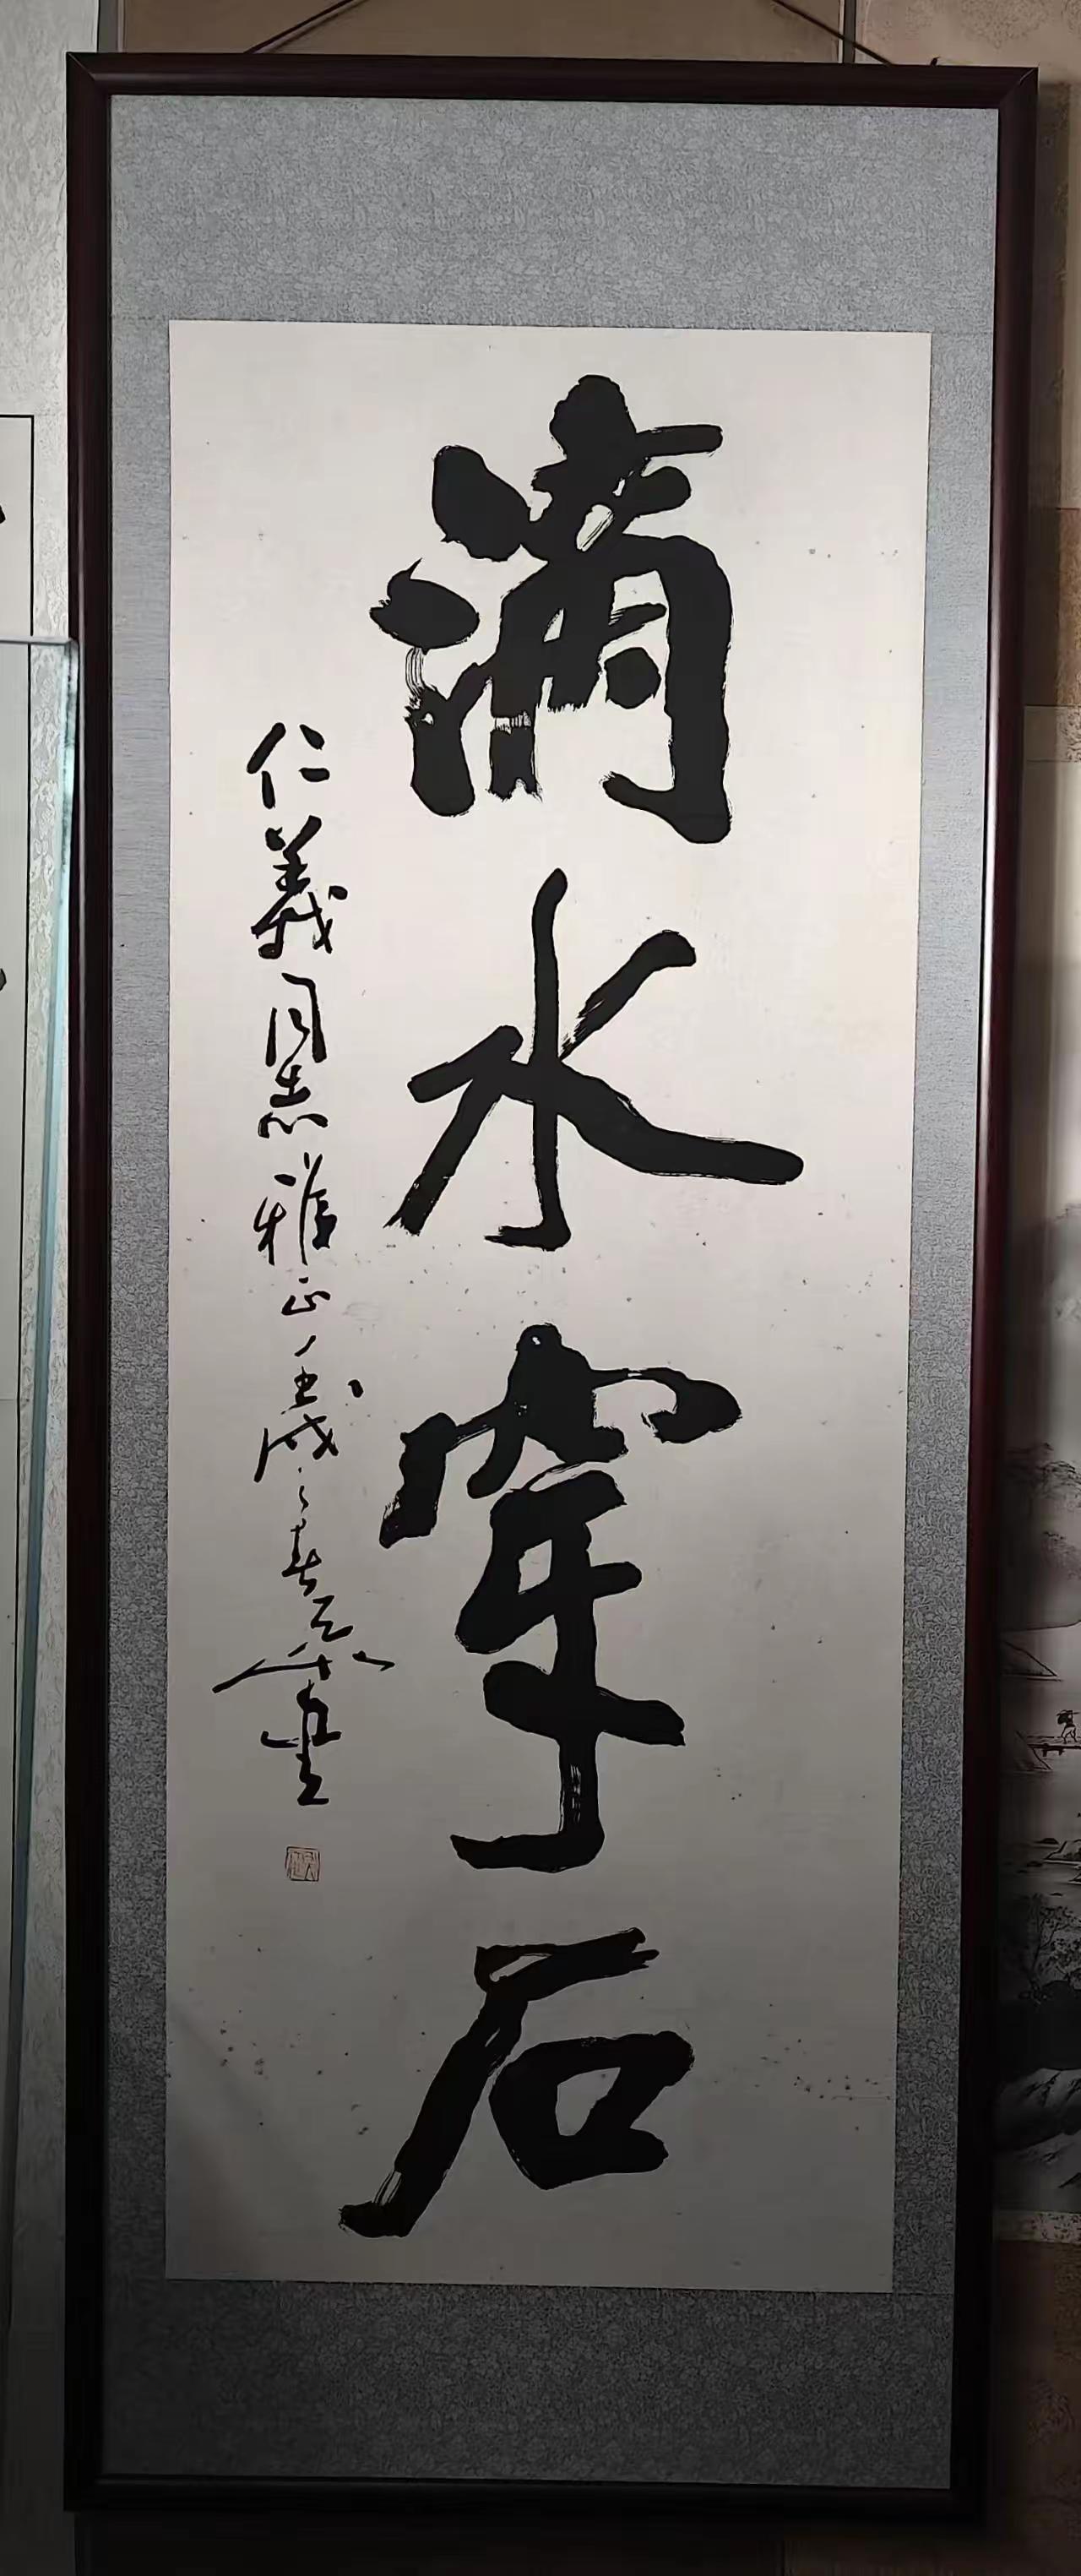 滴水穿石
仁義同志雅正 壬戌之春